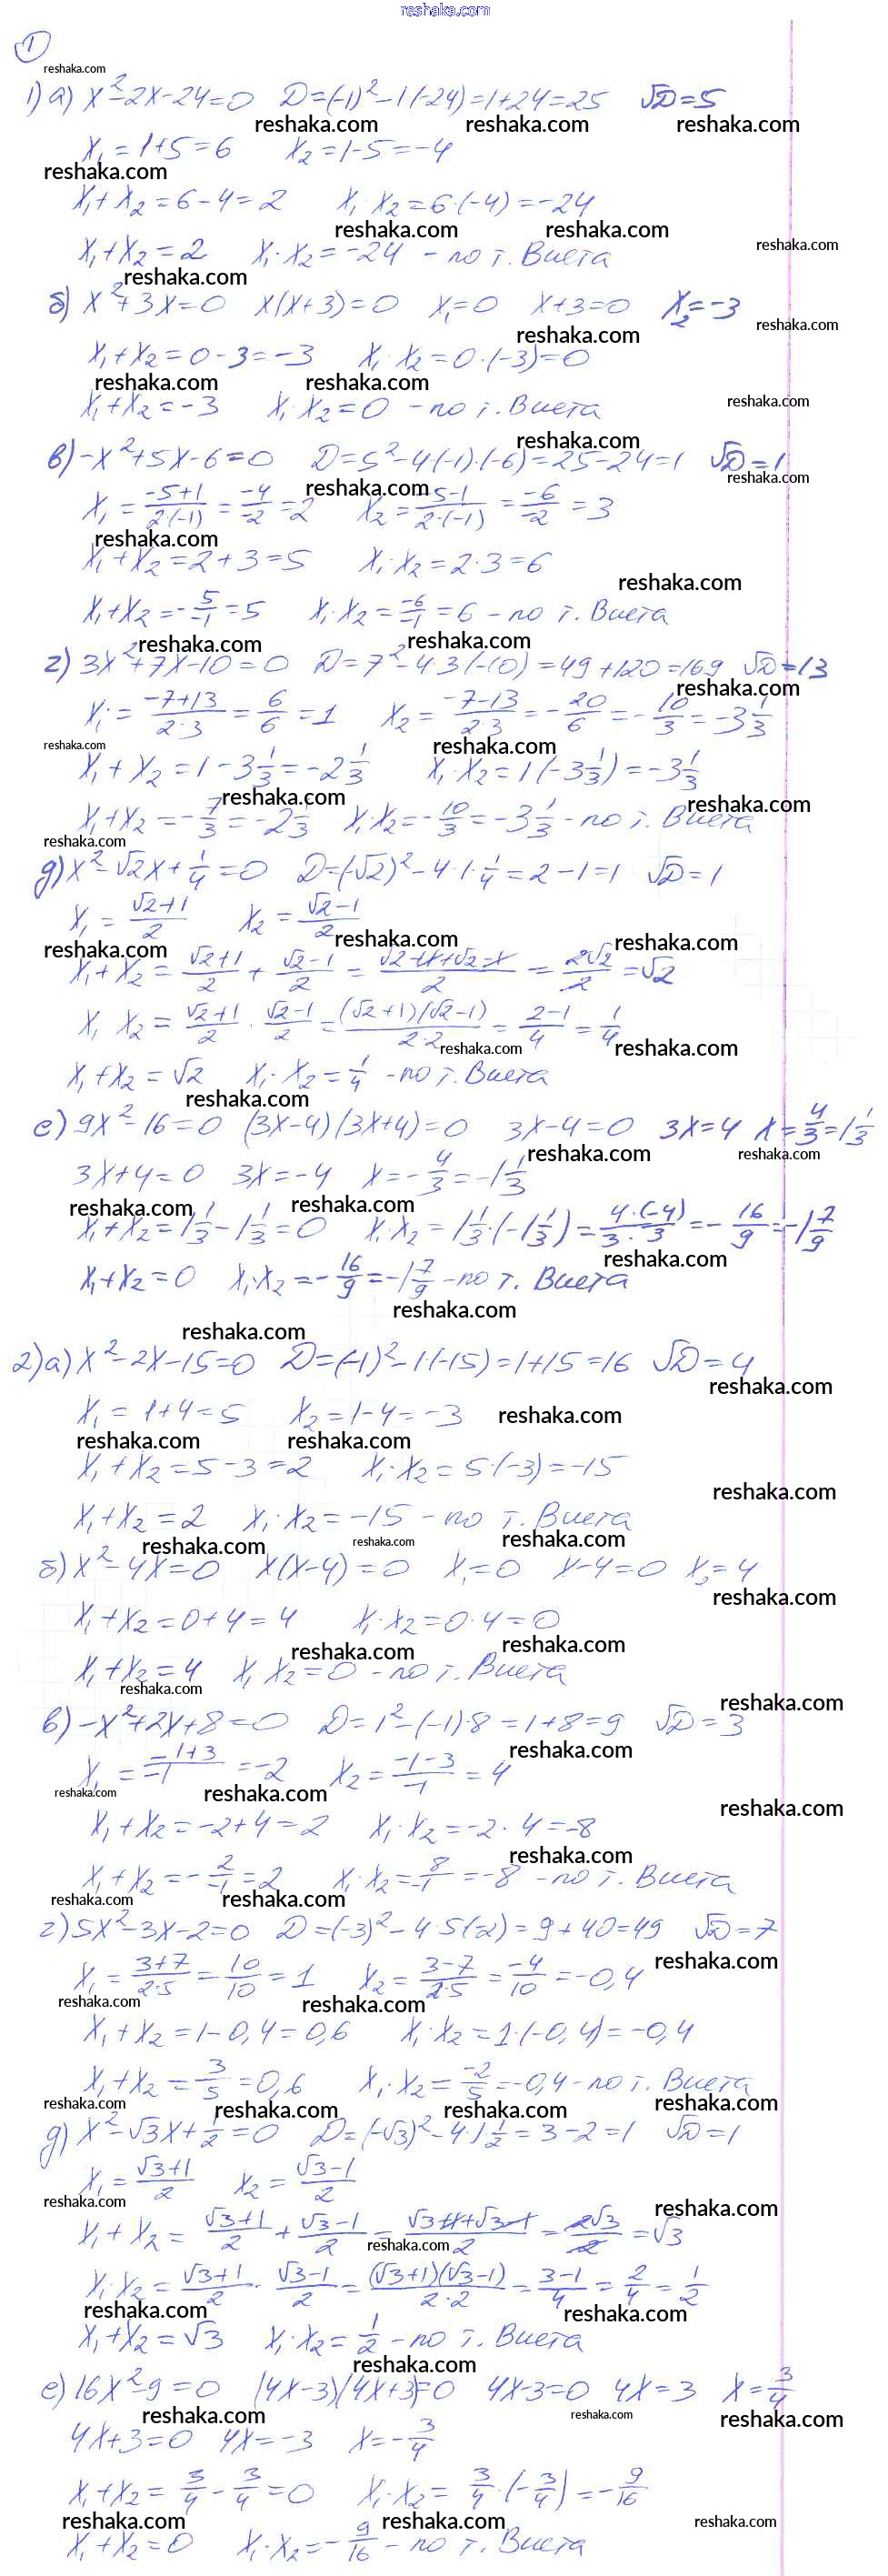 reshaka.com
1
reshaka.com
1) а) x²-2x-24=0 D=(-1)²-1(-24)=1+24=25 √D=5
reshaka.com reshaka.com reshaka.com
x₁=1+5=6 x₂=1-5=-4
reshaka.com
x₁+x₂=6-4=2 x₁·x₂=6·(-4)=-24
reshaka.com reshaka.com reshaka.com
x₁+x₂=2 x₁·x₂=-24 - по т. Виета
reshaka.com
б) x²+3x=0 x(x+3)=0 x₁=0 x+3=0 x₂=-3
reshaka.com reshaka.com
x₁+x₂=0-3=-3 x₁·x₂=0·(-3)=0
reshaka.com reshaka.com reshaka.com
x₁+x₂=-3 x₁·x₂=0 - по т. Виета
reshaka.com
в) -x²+5x-6=0 D=5²-4(-1)·(-6)=25-24=1 √D=1
reshaka.com reshaka.com
x₁=(-5+1)/(2·(-1))=(-4)/(-2)=2 x₂=(-5-1)/(2·(-1))=(-6)/(-2)=3
reshaka.com
x₁+x₂=2+3=5 x₁·x₂=2·3=6
reshaka.com
x₁+x₂=-5/(-1)=5 x₁·x₂=(-6)/(-1)=6 - по т. Виета
reshaka.com reshaka.com
г) 3x²+7x-10=0 D=7²-4·3(-10)=49+120=169 √D=13
reshaka.com
x₁=(-7+13)/(2·3)=6/6=1 x₂=(-7-13)/(2·3)=-20/6=-10/3=-3 1/3
reshaka.com reshaka.com
x₁+x₂=1-3 1/3=-2 1/3 x₁·x₂=1(-3 1/3)=-3 1/3
reshaka.com reshaka.com
x₁+x₂=-7/3=-2 1/3 x₁·x₂=-10/3=-3 1/3 - по т. Виета
reshaka.com
д) x²-√2x+1/4=0 D=(-√2)²-4·1·1/4=2-1=1 √D=1
x₁=(√2+1)/2 x₂=(√2-1)/2
reshaka.com reshaka.com reshaka.com
x₁+x₂=(√2+1)/2+(√2-1)/2=(√2+1+√2-1)/2=2√2/2=√2
x₁·x₂=(√2+1)/2·(√2-1)/2=(√2+1)(√2-1)/(2·2)=(2-1)/4=1/4
reshaka.com reshaka.com
x₁+x₂=√2 x₁·x₂=1/4 - по т. Виета
reshaka.com
е) 9x²-16=0 (3x-4)(3x+4)=0 3x-4=0 3x=4 x=4/3=1 1/3
reshaka.com reshaka.com
3x+4=0 3x=-4 x=-4/3=-1 1/3
reshaka.com reshaka.com
x₁+x₂=1 1/3-1 1/3=0 x₁·x₂=1 1/3·(-1 1/3)=(4·(-4))/(3·3)=-16/9=-1 7/9
reshaka.com
x₁+x₂=0 x₁·x₂=-16/9=-1 7/9 - по т. Виета
reshaka.com
reshaka.com
2) а) x²-2x-15=0 D=(-1)²-1(-15)=1+15=16 √D=4
reshaka.com
x₁=1+4=5 x₂=1-4=-3 reshaka.com
reshaka.com reshaka.com
x₁+x₂=5-3=2 x₁·x₂=5·(-3)=-15
reshaka.com
x₁+x₂=2 x₁·x₂=-15 - по т. Виета
reshaka.com reshaka.com reshaka.com
б) x²-4x=0 x(x-4)=0 x₁=0 x-4=0 x₂=4
reshaka.com
x₁+x₂=0+4=4 x₁·x₂=0·4=0
reshaka.com reshaka.com
x₁+x₂=4 x₁·x₂=0 - по т. Виета
reshaka.com reshaka.com
в) -x²+2x+8=0 D=1²-(-1)·8=1+8=9 √D=3
reshaka.com
x₁=(-1+3)/(-1)=-2 x₂=(-1-3)/(-1)=4
reshaka.com reshaka.com reshaka.com
x₁+x₂=-2+4=2 x₁·x₂=-2·4=-8
reshaka.com
x₁+x₂=-2/(-1)=2 x₁·x₂=8/(-1)=-8 - по т. Виета
reshaka.com reshaka.com
г) 5x²-3x-2=0 D=(-3)²-4·5(-2)=9+40=49 √D=7
reshaka.com
x₁=(3+7)/(2·5)=10/10=1 x₂=(3-7)/(2·5)=(-4)/10=-0,4
reshaka.com reshaka.com
x₁+x₂=1-0,4=0,6 x₁·x₂=1·(-0,4)=-0,4
x₁+x₂=3/5=0,6 x₁·x₂=(-2)/5=-0,4 - по т. Виета
reshaka.com reshaka.com reshaka.com reshaka.com
д) x²-√3x+1/2=0 D=(-√3)²-4·1·1/2=3-2=1 √D=1
x₁=(√3+1)/2 x₂=(√3-1)/2
reshaka.com reshaka.com
x₁+x₂=(√3+1)/2+(√3-1)/2=(√3+1+√3-1)/2=2√3/2=√3
reshaka.com
x₁·x₂=(√3+1)/2·(√3-1)/2=(√3+1)(√3-1)/(2·2)=(3-1)/4=2/4=1/2
reshaka.com reshaka.com
x₁+x₂=√3 x₁·x₂=1/2 - по т. Виета
reshaka.com
е) 16x²-9=0 (4x-3)(4x+3)=0 4x-3=0 4x=3 x=3/4
reshaka.com reshaka.com reshaka.com
4x+3=0 4x=-3 x=-3/4
x₁+x₂=3/4-3/4=0 x₁·x₂=3/4·(-3/4)=-9/16
reshaka.com reshaka.com reshaka.com
x₁+x₂=0 x₁·x₂=-9/16 - по т. Виета